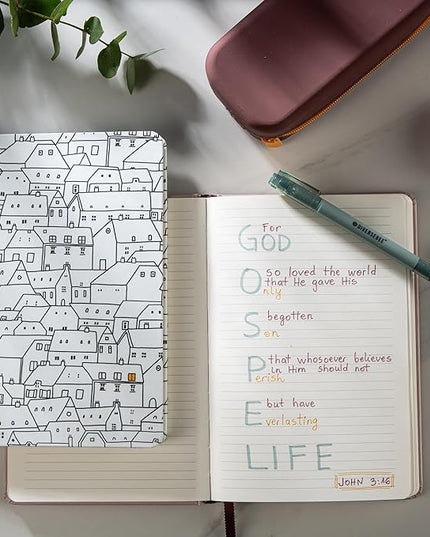 For
GOD
so loved the world
that He gave His
Only
begotten
Son
that whosoever believes
in Him should not
Perish
but have
Everlasting
LIFE
JOHN 3:16
DIVERSENSE